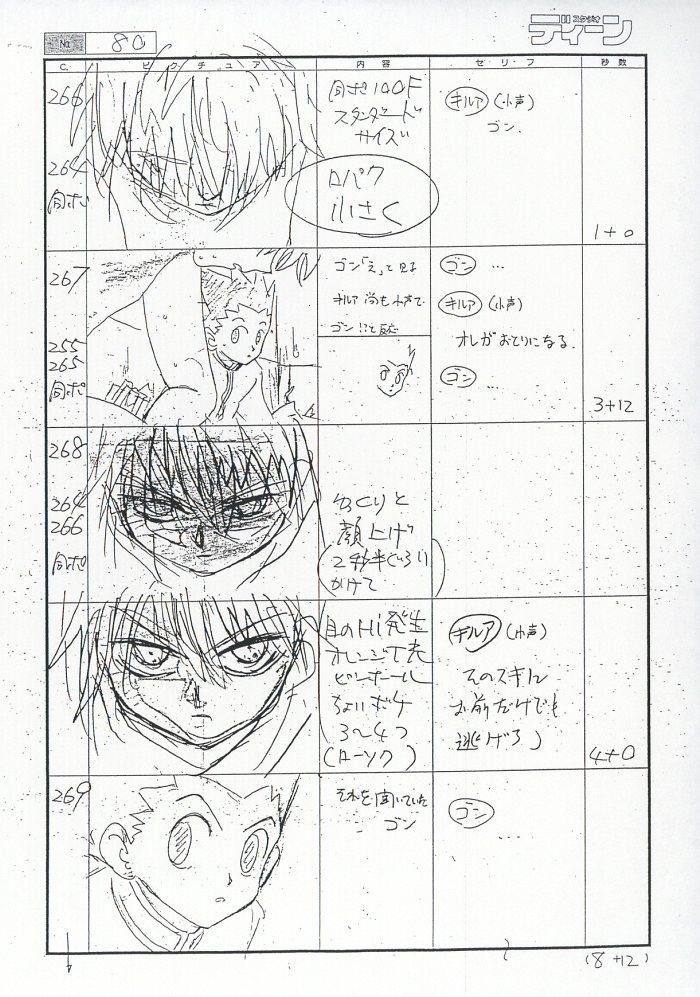 スタジオ
ディーン
No. 80
C. ピクチュア 内容 セリフ 秒数
266
264
同ポ
同ポ100F
スタンダード
サイズ
口パク
小さく
キルア (小声)
ゴン.
1+0
267
255
265
同ポ
ゴン「え」って見る
キルア 尚も小声で
ゴン !?と反応
ゴン …
キルア (小声)
オレがおとりになる.
ゴン …
3+12
268
264
266
同ポ
ゆっくりと
顔上げ
(2秒半ぐらい
かけて)
目のHi発生
オレンジT光
ピンホール
ちょいボケ
3〜4つ
(ローソク)
キルア (小声)
そのスキに
お前だけでも
逃げろ」
4+0
269
それを聞いていた
ゴン
ゴン
…
(8+12)